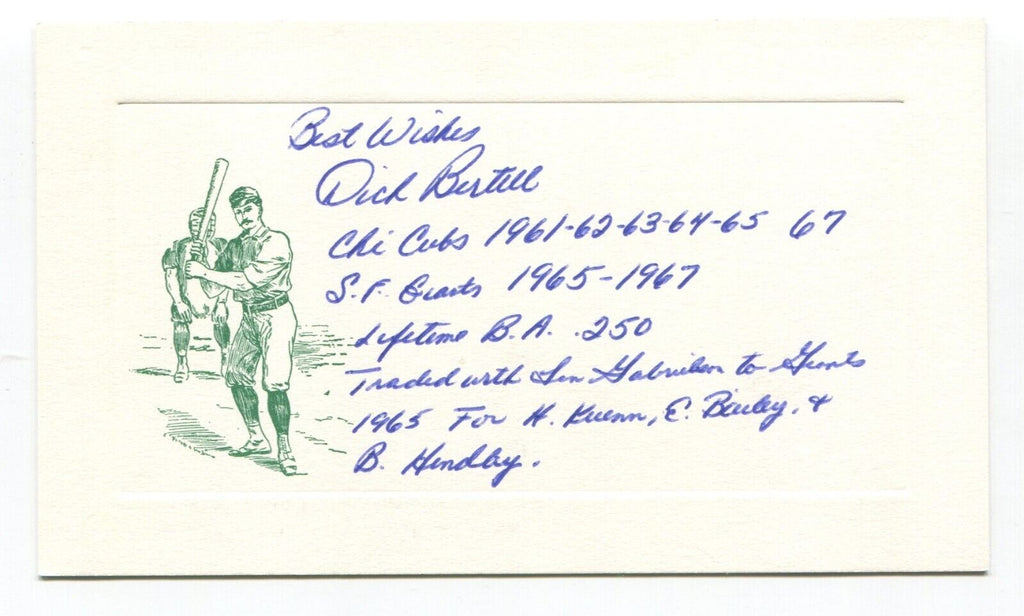 Best Wishes
Dick Bertell
Chi Cubs 1961-62-63-64-65 67
S.F. Giants 1965-1967
Lifetime B.A. .250
Traded with Len Gabrielson to Giants
1965 For H. Kuenn, E. Bailey, &
B. Hendley.